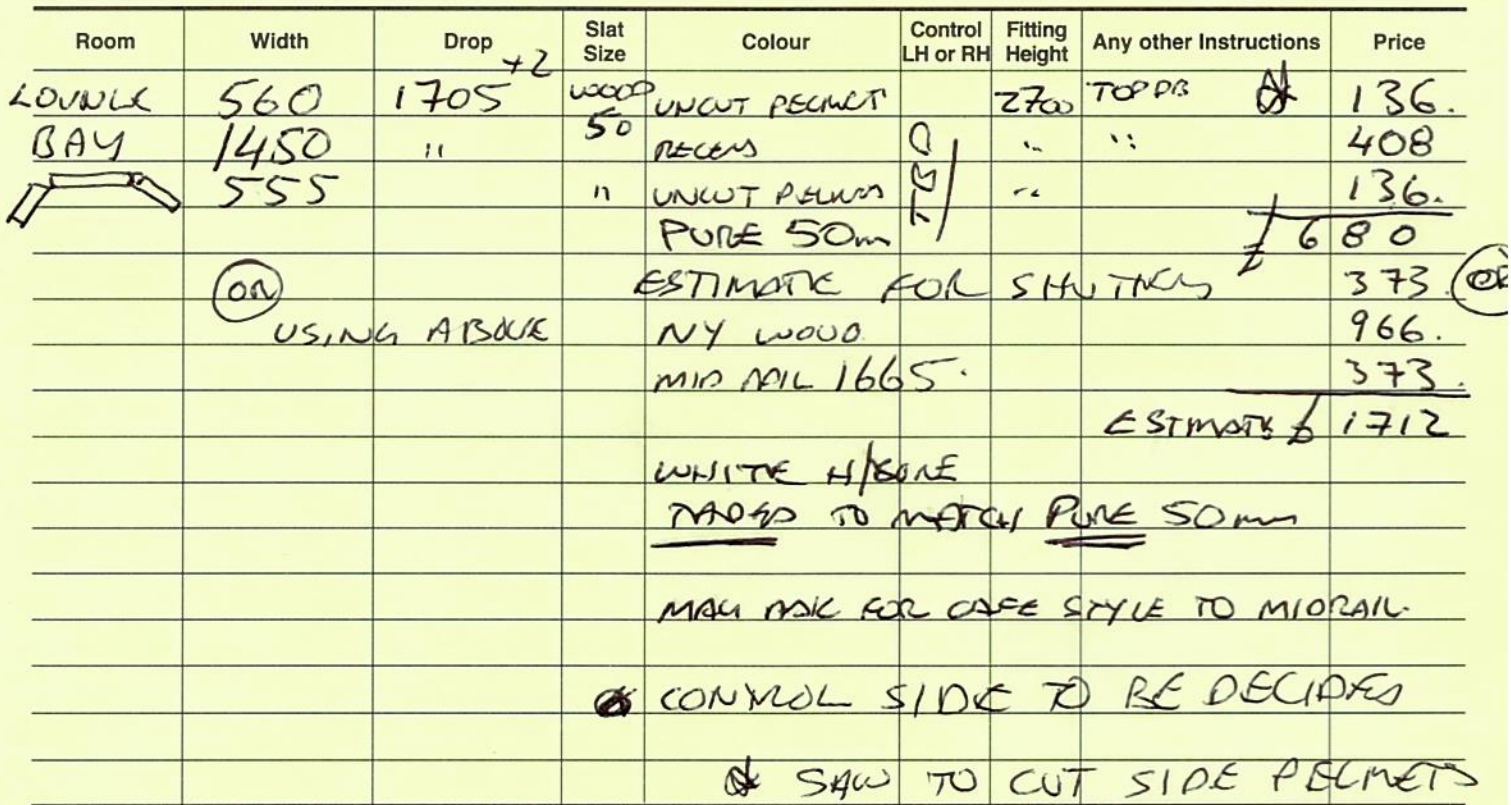 Room Width Drop +2 Slat Size Colour Control LH or RH Fitting Height Any other Instructions Price
LOUNGE 560 1705 WOOD 50 UNCUT PELMET 2700 TOP DB 136.
BAY 1450 " RECESS TBD " " 408
555 " UNCUT PELMET " 136.
PURE 50m £ 680
OR ESTIMATE FOR SHUTTERS 373 OR
USING ABOVE NY WOOD 966.
MID RAIL 1665. 373.
ESTIMATE £ 1712
WHITE H/BONE
TAPED TO MATCH PURE 50mm
MAY ASK FOR CAFE STYLE TO MIDRAIL.
CONTROL SIDE TO BE DECIDED
SAW TO CUT SIDE PELMETS